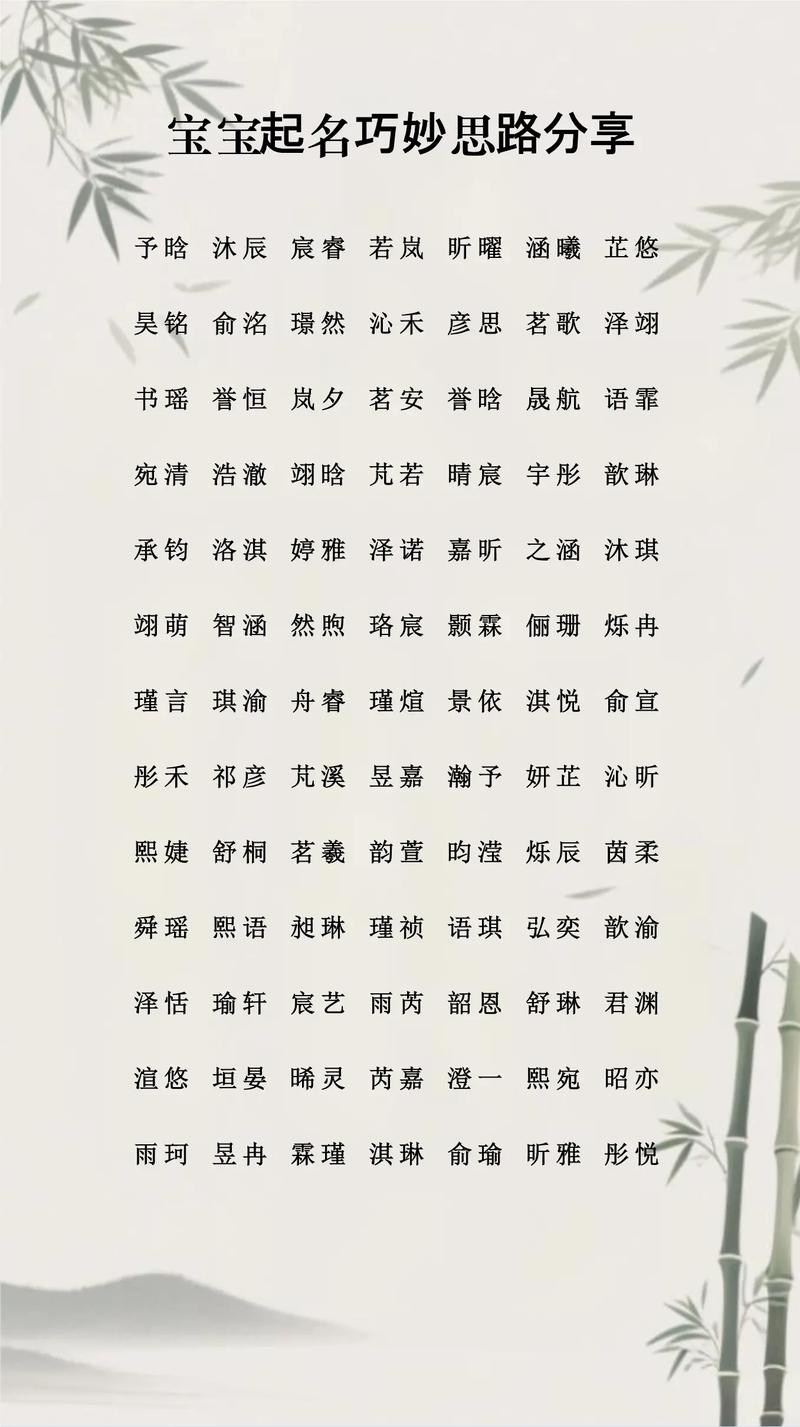 宝宝起名巧妙思路分享
予晗 沐辰 宸睿 若岚 昕曜 涵曦 芷悠
昊铭 俞洺 璟然 沁禾 彦思 茗歌 泽翊
书瑶 誉恒 岚夕 茗安 誉晗 晟航 语霏
宛清 浩澈 翊晗 芃若 晴宸 宇彤 歆琳
承钧 洛淇 婷雅 泽诺 嘉昕 之涵 沐琪
翊萌 智涵 然煦 珞宸 颢霖 俪珊 烁冉
瑾言 琪渝 舟睿 瑾煊 景依 淇悦 俞宣
彤禾 祁彦 芃溪 昱嘉 瀚予 妍芷 沁昕
熙婕 舒桐 茗羲 韵萱 昀滢 烁辰 茵柔
舜瑶 熙语 昶琳 瑾祯 语琪 弘奕 歆渝
泽恬 瑜轩 宸艺 雨芮 韶恩 舒琳 君渊
渲悠 垣晏 晞灵 芮嘉 澄一 熙宛 昭亦
雨珂 昱冉 霖瑾 淇琳 俞瑜 昕雅 彤悦